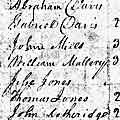 Abraham Davis
Gabriel Davis 2
John Mills 3
William Mallery 3
Jones
Thomas Jones 2
John Lotheridge 3